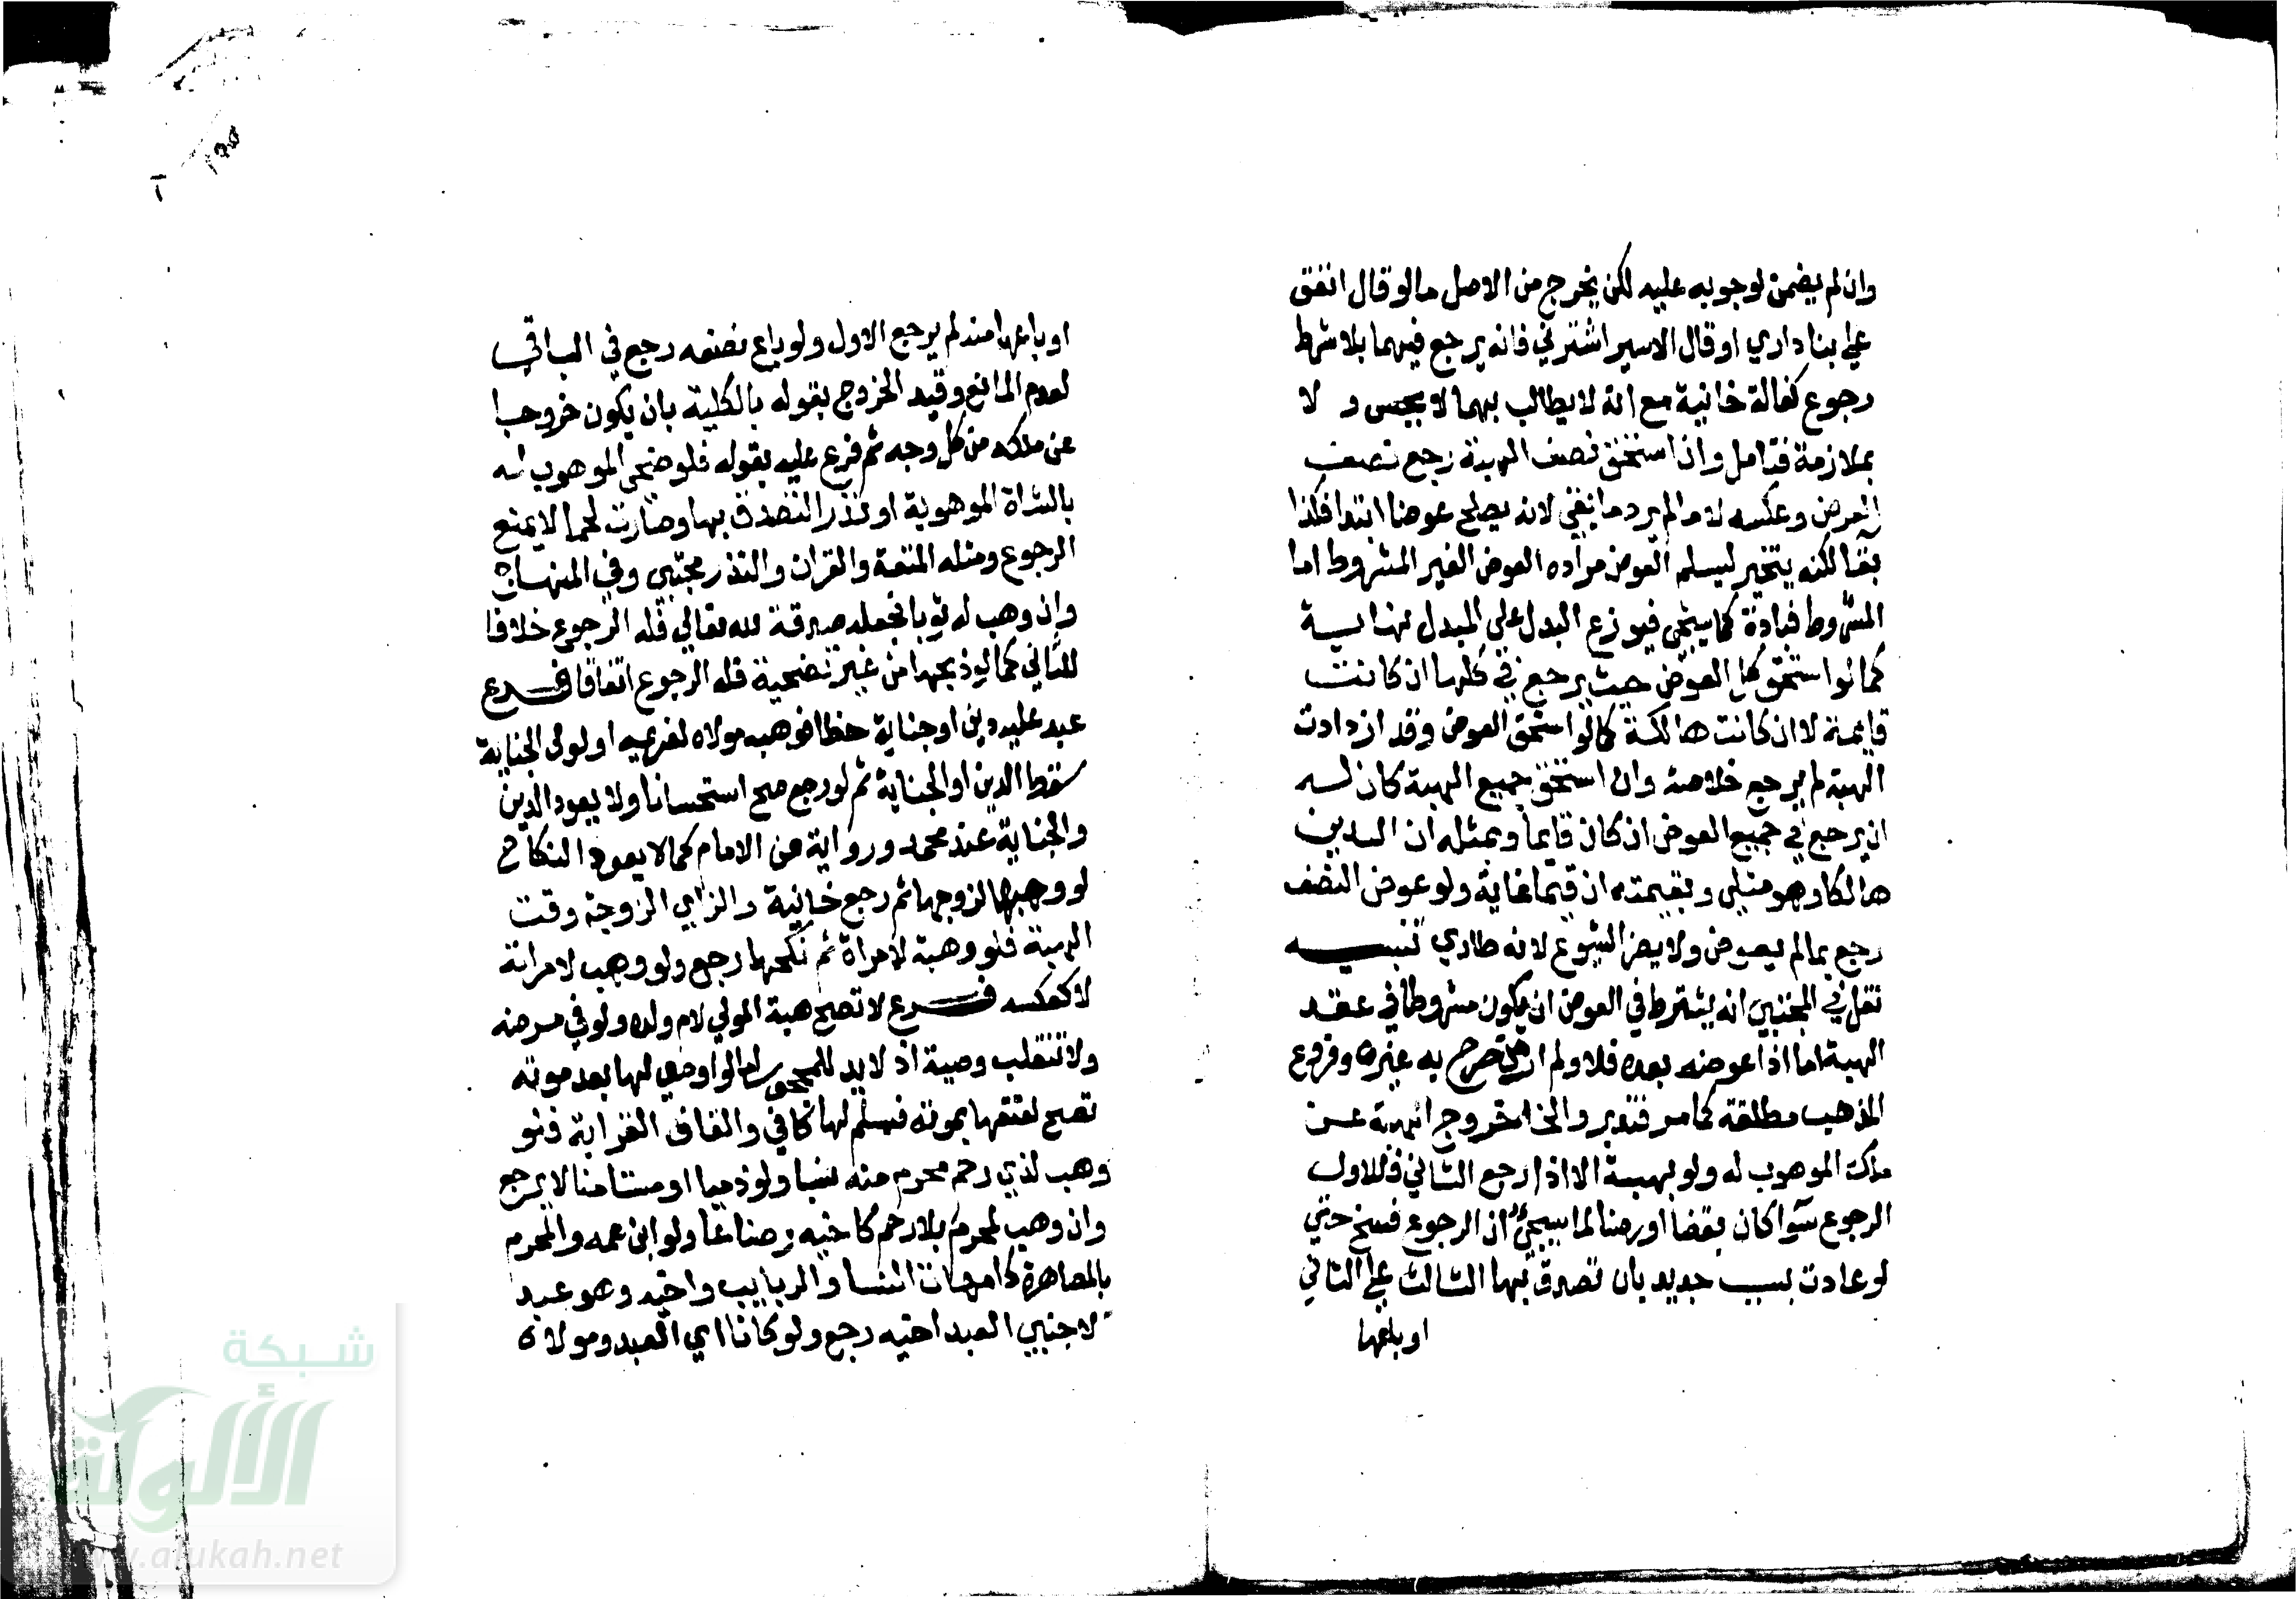 وان لم يضمن لوجوبه عليه لكن يخرج من الاصل مالو قال انفق
علي بنا داري او قال الاسير اشترني فانه يرجع فيهما بلا شرط
رجوع كفالة خانية مع انه لا يطالب بهما لا بحبس و لا
بملازمة فتامل وان استحق نصف الهبة رجع بنصف
العوض وعكسه لا مالم يرد ما بقي لانه يصلح عوضا ابتدا فكذا
بقا لكنه يتخير ليسلم العوض مراده العوض الغير المشروط اما
المشروط فمبادلة كما سيجي فيوزع البدل علي المبدل نهاية
كما لو استحق كل العوض حيث يرجع في كلها ان كانت
قايمة لا ان كانت هالكة كما لو استحق العوض وقد ازدادت
الهبة لم يرجع خلاصة وان استحق جميع الهبة كان له
ان يرجع في جميع العوض ان كان قايما وبمثله ان
هالكا وهو مثلي وبقيمته ان قيميا غاية ولو عوض النصف
رجع بمالم يعوض ولا يضر الشيوع لانه طاري تنبيه
نقل في المجتبي انه يشترط في العوض ان يكون مشروطا في عقد
الهبة اما اذا عوضه بعده فلا ولم ار من صرح به غيره وفروع
المذهب مطلقة كما مر فتدبر والخا خروج الهبة عن
ملك الموهوب له ولو بهبة الا اذا رجع الثاني فللاول
الرجوع سوا كان بقضا او رضا لما سيجئ ان الرجوع فسخ حتي
لو عادت بسبب جديد بان تصدق بها الثالث علي الثاني
او باعها
او باعها منه لم يرجع الاول ولو باع نصفه رجع في الباقي
لعدم المانع وقيد الخروج بقوله بالكلية بان يكون خروجا
عن ملكه من كل وجه ثم فرع عليه بقوله فلو ضحي الموهوب له
بالشاة الموهوبة او نذر التصدق بها وصارت لحما لا يمنع
الرجوع ومثله المتعة والقران والنذر مجتبي وفي المنهاج
وان وهب له ثوبا فجعله صدقة لله تعالي فله الرجوع خلافا
للثاني كما لو ذبحها من غير تضحية فله الرجوع اتفاقا فرع
عبد عليه دين او جناية خطا فوهبه مولاه لغريمه او لولي الجناية
سقط الدين او الجناية ثم لو رجع صح استحسانا ولا يعود الدين
والجناية عند محمد ورواية عن الامام كما لا يعود النكاح
لو وهبها لزوجها ثم رجع خانية والزاي الزوجية وقت
الهبة فلو وهبة لامراة ثم نكحها رجع ولو وهب لامراته
لا كعكسه فرع لا تصح هبة المولي لام ولده ولو في مرضه
ولا تنقلب وصية اذ لا يد للمحجور اما لو اوصي لها بعد موته
تصح لعتقها بموته فيسلم لها كافي والقاف القرابة فلو
وهب لذي رحم محرم منه نسبا ولو ذميا او مستامنا لا يرجع
وان وهب لمحرم بلا رحم كاخيه رضاعا ولو ابن عمه والمحرم
بالمصاهرة كامهات النسا والربايب واخيه وهو عبد
لاجنبي العبد اخيه رجع ولو كانا اي العبد ومولاه
شبكة
الألوكة
www.alukah.net